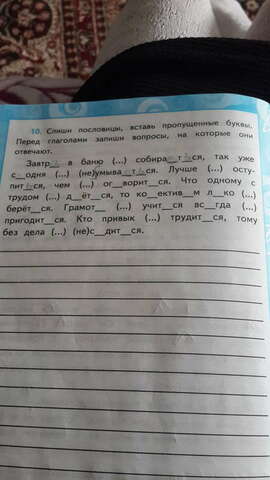 10. Спиши пословицы, вставь пропущенные буквы.
Перед глаголами запиши вопросы, на которые они
отвечают.
Завтр__ в баню (...) собира__т_ь_ся, так уже
с__одня (...) (не)умыва__т_ь_ся. Лучше (...) осту-
пит_ь_ся, чем (...) ог__ворит__ся. Что одному с
трудом (...) д__ёт__ся, то ко__ектив__м л__ко (...)
берёт__ся. Грамот__ (...) учит__ся вс__гда (...)
пригодит__ся. Кто привык (...) трудит__ся, тому
без дела (...) (не)с__дит__ся.